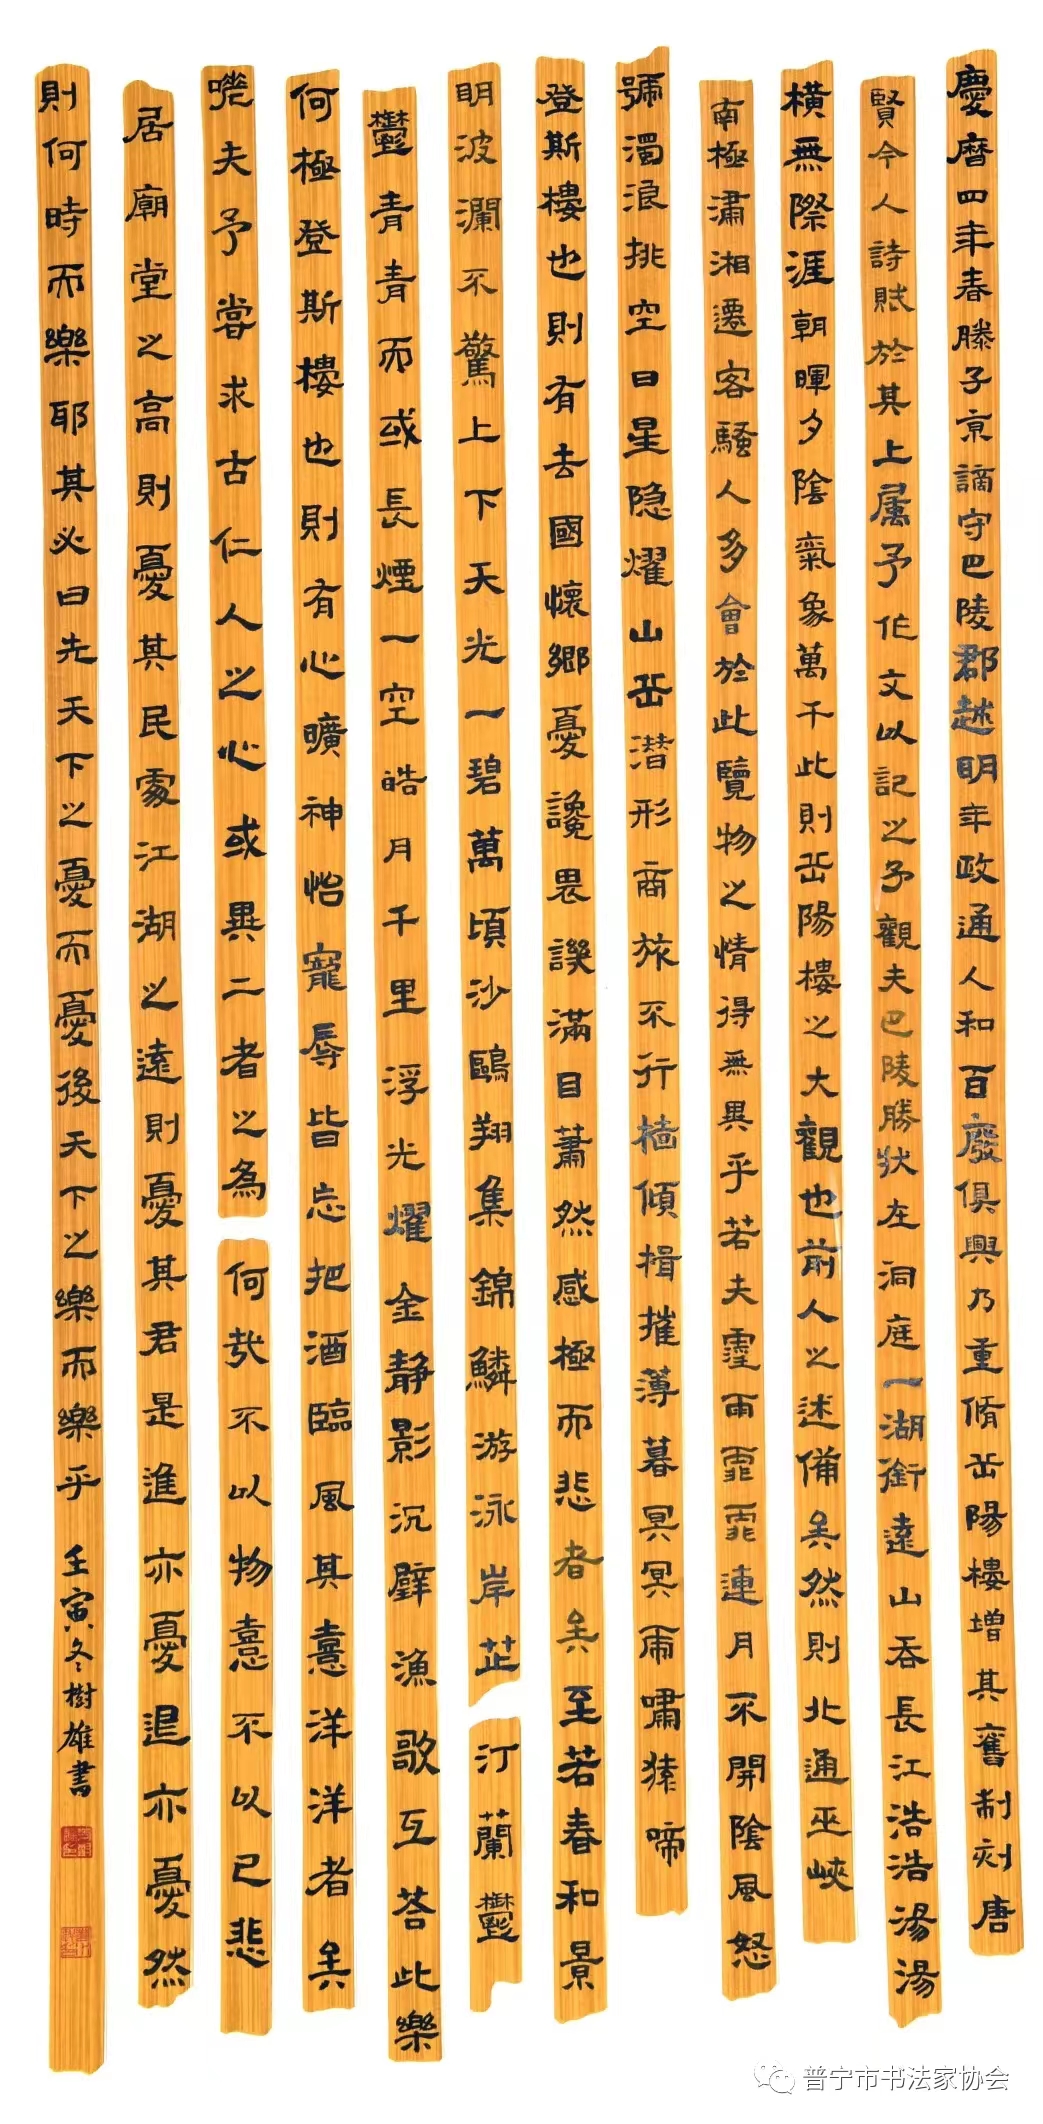 慶曆四年春滕子京謫守巴陵郡越明年政通人和百廢俱興乃重脩岳陽樓增其舊制刻唐
賢今人詩賦於其上属予作文以記之予觀夫巴陵勝狀在洞庭一湖銜遠山吞長江浩浩湯湯
橫無際涯朝暉夕陰氣象萬千此則岳陽樓之大觀也前人之述備矣然則北通巫峽
南極瀟湘遷客騷人多會於此覽物之情得無異乎若夫霪雨霏霏連月不開陰風怒
號濁浪排空日星隐燿山岳潛形商旅不行檣傾楫摧薄暮冥冥雨嘯猿啼
登斯樓也則有去國懷鄉憂讒畏譏滿目蕭然感極而悲者矣至若春和景
明波瀾不驚上下天光一碧萬頃沙鷗翔集錦鱗游泳岸芷汀蘭鬱
鬱青青而或長煙一空皓月千里浮光燿金静影沉璧漁歌互荅此樂
何極登斯樓也則有心曠神怡寵辱皆忘把酒臨風其憙洋洋者矣
嗟夫予嘗求古仁人之心或異二者之為何哉不以物憙不以己悲
居廟堂之高則憂其民處江湖之遠則憂其君是進亦憂退亦憂然
則何時而樂耶其必曰先天下之憂而憂後天下之樂而樂乎 壬寅冬樹雄書
普宁市书法家协会